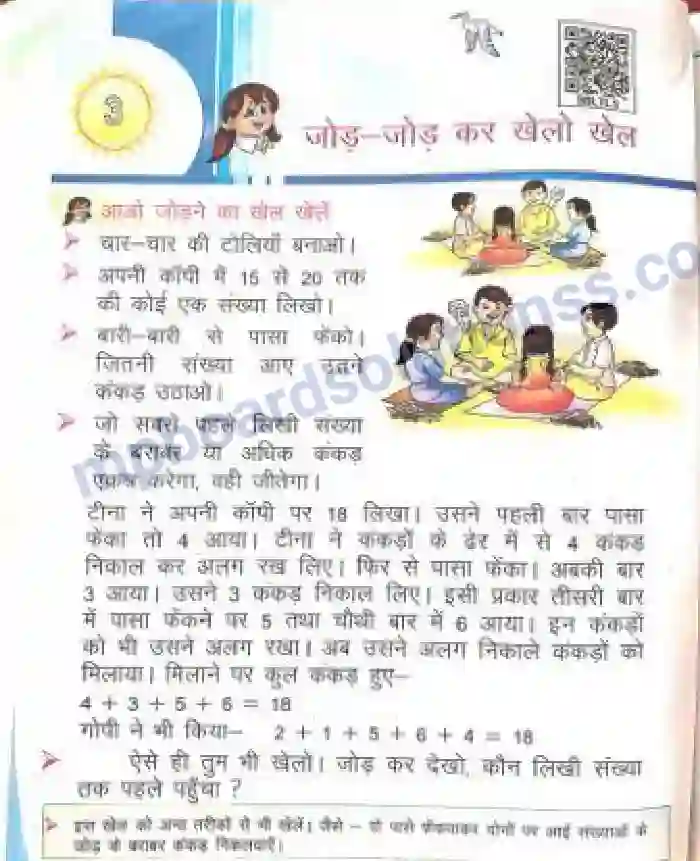 3
जोड़-जोड़ कर खेलो खेल
आओ जोड़ने का खेल खेलें
चार-चार की टोलियाँ बनाओ।
अपनी कॉपी में 15 से 20 तक
की कोई एक संख्या लिखो।
बारी-बारी से पासा फेंको।
जितनी संख्या आए उतने
कंकड़ उठाओ।
जो सबसे पहले लिखी संख्या
के बराबर या अधिक कंकड़
एकत्र करेगा, वही जीतेगा।
टीना ने अपनी कॉपी पर 18 लिखा। उसने पहली बार पासा
फेंका तो 4 आया। टीना ने कंकड़ों के ढेर में से 4 कंकड़
निकाल कर अलग रख लिए। फिर से पासा फेंका। अबकी बार
3 आया। उसने 3 कंकड़ निकाल लिए। इसी प्रकार तीसरी बार
में पासा फेंकने पर 5 तथा चौथी बार में 6 आया। इन कंकड़ों
को भी उसने अलग रखा। अब उसने अलग निकाले कंकड़ों को
मिलाया। मिलाने पर कुल कंकड़ हुए-
4 + 3 + 5 + 6 = 18
गोपी ने भी किया- 2 + 1 + 5 + 6 + 4 = 18
ऐसे ही तुम भी खेलो। जोड़ कर देखो, कौन लिखी संख्या
तक पहले पहुँचा ?
इस खेल को अन्य तरीकों से भी खेलें। जैसे - दो पासे फेंकवाकर दोनों पर आई संख्याओं के
जोड़ के बराबर कंकड़ निकलवाएँ।
mpboardsolutionss.co